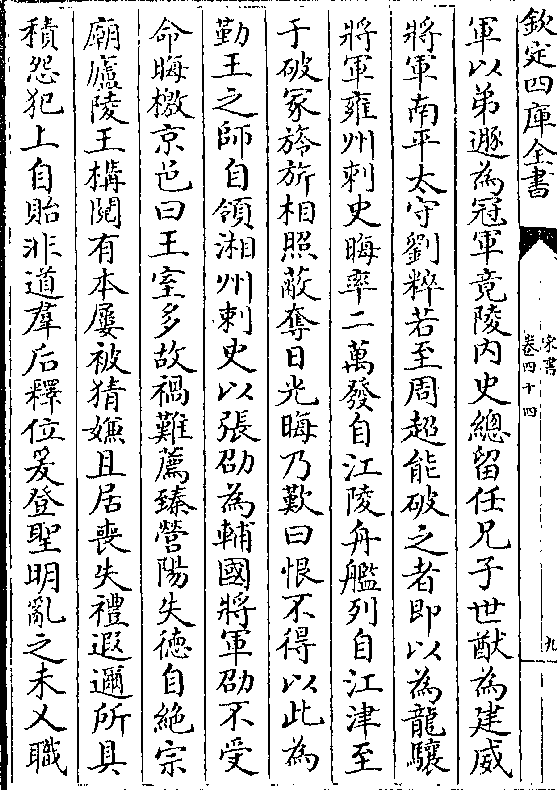 欽定四庫全書
宋書
卷四十四
九
軍以弟遯為冠軍竟陵內史總留任兄子世猷為建威
將軍南平太守劉粹若至周超能破之者即以為龍驤
將軍雍州刺史晦率二萬發自江陵舟艦列自江津至
于破冢旍旂相照蔽奪日光晦乃歎曰恨不得以此為
勤王之師自領湘州刺史以張劭為輔國將軍劭不受
命晦檄京邑曰王室多故禍難薦臻營陽失德自絶宗
廟廬陵王構鬩有本屢被猜嫌且居喪失禮遐邇所具
積怨犯上自貽非道羣后釋位爰登聖明亂之未乂職